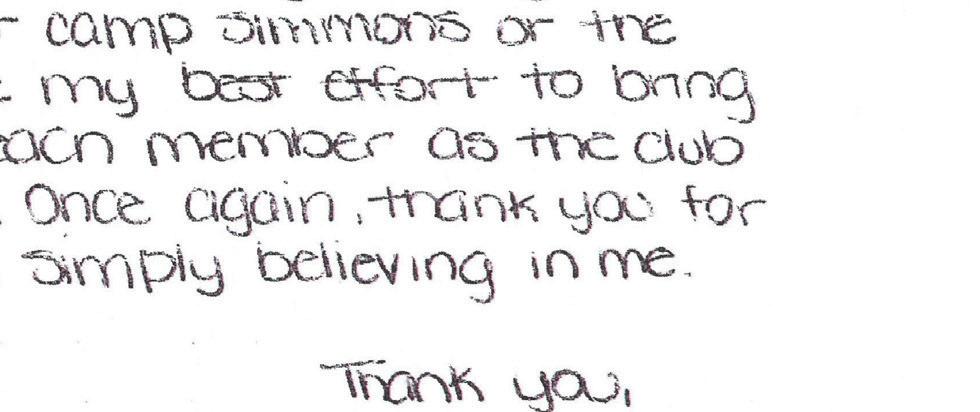 camp simmons or the
my best effort to bring
each member as the club
Once again, thank you for
simply believing in me.
Thank you,